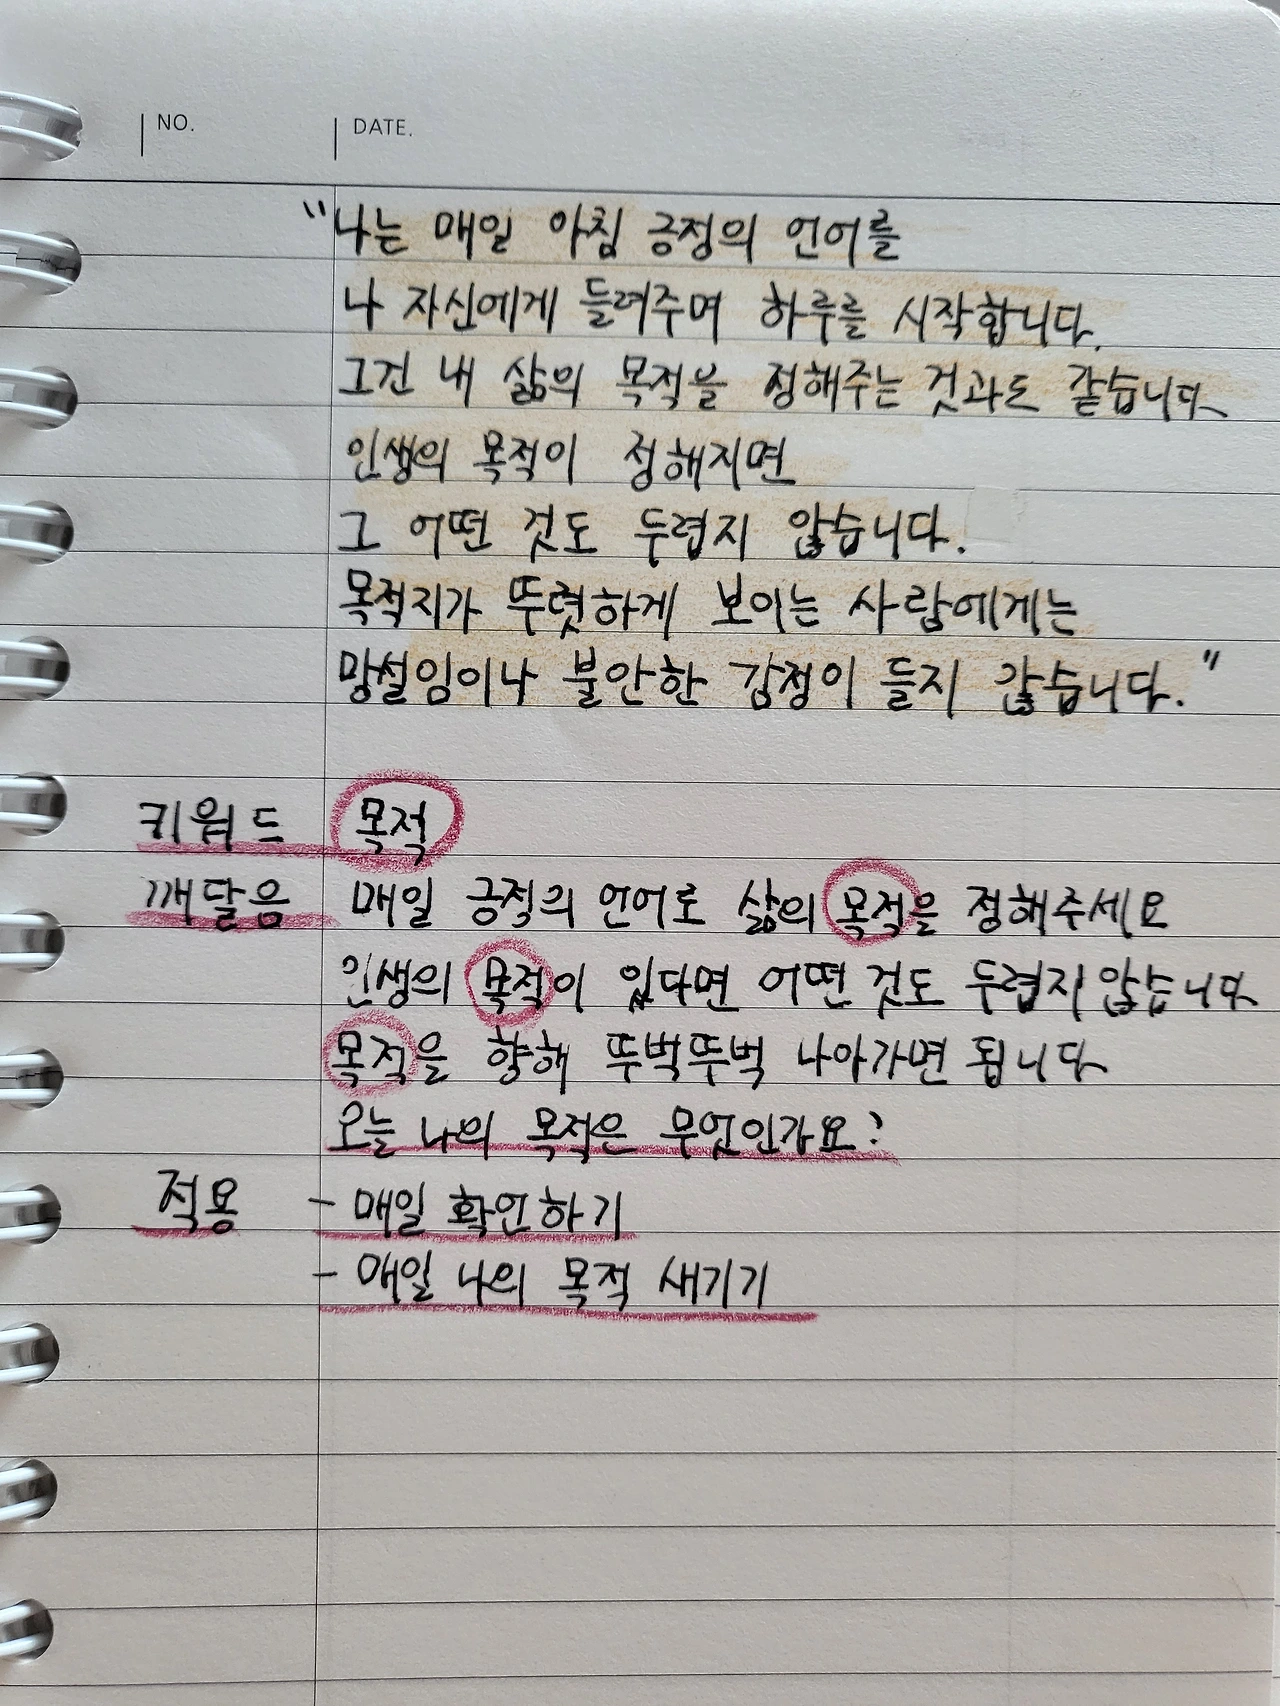 NO. DATE.
"나는 매일 아침 긍정의 언어를
나 자신에게 들려주며 하루를 시작합니다.
그건 내 삶의 목적을 정해주는 것과도 같습니다.
인생의 목적이 정해지면
그 어떤 것도 두렵지 않습니다.
목적지가 뚜렷하게 보이는 사람에게는
망설임이나 불안한 감정이 들지 않습니다."
키워드 목적
깨달음 매일 긍정의 언어로 삶의 목적을 정해주세요
인생의 목적이 있다면 어떤 것도 두렵지 않습니다
목적을 향해 뚜벅뚜벅 나아가면 됩니다
오늘 나의 목적은 무엇인가요?
적용 - 매일 확언하기
- 매일 나의 목적 새기기